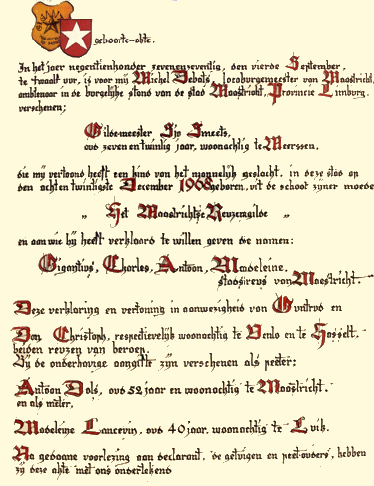 geboorte-akte.
In het jaar negentienhonder zevenenzeventig, den vierde September,
te twaalf uur, is voor mij Michel Debats, locoburgemeester van Maastricht,
ambtenaar in de burgelijke stand van de stad Maastricht, Provincie Limburg,
verschenen;
Gildemeester Jip Smeets,
oud zeven en twintig jaar, woonachtig te Meerssen,
die mij vertoond heeft een kind van het mannelijk geslacht, in deze stad op
den achten twintigste December 1968 geboren, uit de schoot zijner moeder
„ Het Maastrichtse Reuzengilde „
en aan wie hij heeft verklaard te willen geven de namen:
Gigantius, Charles, Antoon, Madeleine,
stadsreus van Maastricht.
Deze verklaring en vertoning in aanwezigheid van Guntrud en
Don Christoph, respectievelijk woonachtig te Venlo en te Hasselt,
beiden reuzen van beroep.
Bij de onderhavige aangifte zijn verschenen als peeter:
Antoon Dols, oud 52 jaar en woonachtig te Maastricht,
en als meter,
Madeleine Lancevin, oud 40 jaar, woonachtig te Luik.
Na gedaane voorlezing aan declarant, de getuigen en peetouders, hebben
zij deze akte met ons ondertekend